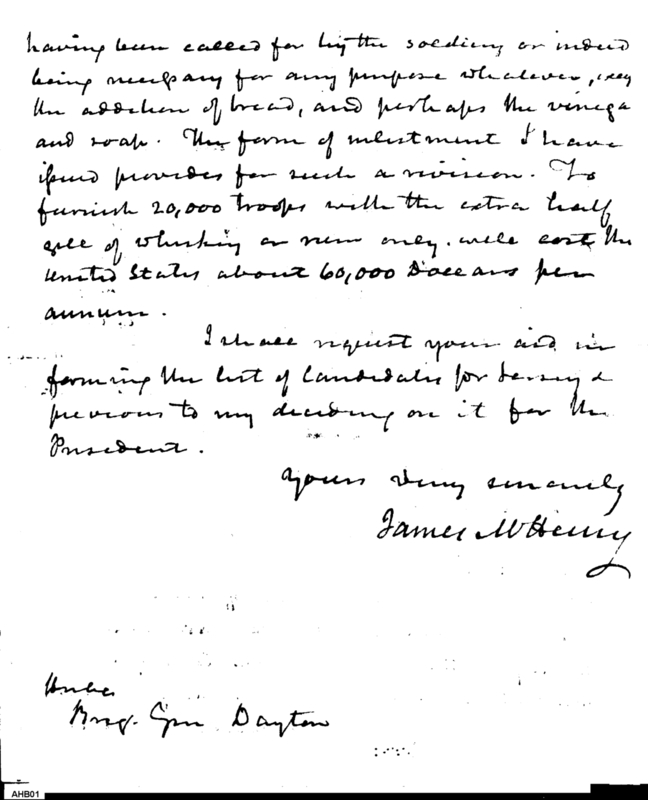 having been called for by the soldiery or indeed
being necessary for any purpose whatever, exc
the addition of bread, and perhaps the vinega
and soap. The form of inlistment I have
issued provides for such a revision. To
furnish 20,000 troops with the extra half
gill of whiskey or rum only. will cost the
United States about 60,000 Dollars per
annum.
I shall request your aid in
forming the list of Candidates for Jersey &
previous to my deciding on it for the
President.
Yours very sincerely
James McHenry
Brig. Gen Dayton
AHB01